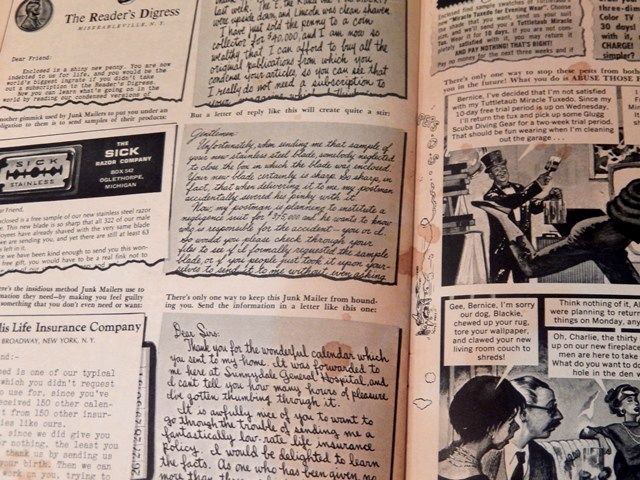 The Reader's Digress
MISERABLEVILLE, N.Y.
Dear Friend:
Enclosed is a shiny new penny. You are now
indebted to us for life, and you would be the
world's biggest ingrate if you didn't take
out a subscription to the Reader's Digress.
Now you can learn what's going on in the
world by reading our condensed versions of
another gimmick used by Junk Mailers to put you under an
obligation to them is to send samples of their products:
THE
SICK
RAZOR COMPANY
BOX 542
OGLETHORPE,
MICHIGAN
SICK
STAINLESS
Friend,
closed is a free sample of our new stainless steel razor
This new blade is so sharp that all 322 of our male
have already shaved with the very same blade
we are sending you, and yet there are still at least 63
left in it.
we have been kind enough to send you this won-
free gift, you would have to be a real fink not to
the insidious method Junk Mailers use to
they need—by making you feel guilty
something that you don't even need or want:
Life Insurance Company
BROADWAY, NEW YORK, N.Y.
is one of our typical
which you didn't request
use for, since you've
received 150 other calen-
from 150 other insur-
like ours.
since we did give you
for nothing, the least you
thank us by sending us
your birth. Then we can
work on you, trying to
I have just sold this penny to a coin
collector for $40,000, and I am now so
wealthy that I can afford to buy all the
original publications from which you
reprint your articles, so you can see that
I really do not need a subscription to
But a letter of reply like this will create quite a stir:
Gentlemen:
Unfortunately, when sending me that sample of
your new stainless steel blade, somebody neglected
to close the box in which the blade was enclosed.
Your new blade certainly is sharp. So sharp, in
fact, that when delivering it to me my postman
accidentally severed his pinky with it.
Now my postman is planning to institute a
negligence suit for $375,000 and he wants to know
who is responsible for the accident—you or I.
So would you please check through your
files to see if I formally requested the sample
blade, or if you people just took it upon your-
selves to send it to me without even asking
There's only one way to keep this Junk Mailer from hound-
ing you. Send the information in a letter like this one:
Dear Sirs:
Thank you for the wonderful calendar which
you sent to my home. It was forwarded to
me here at Sunnydale General Hospital, and
I can't tell you how many hours of pleasure
I've gotten thumbing through it.
It is awfully nice of you to want to
go through the trouble of sending me a
fantastically low-rate life insurance
policy. I would be delighted to learn
the facts. As one who has been given no
There's only one way to stop these pests from
you in the future! What you do is ABUSE THOSE
Bernice, I've decided I'm not satisfied
with my Tuttlebaub Miracle Tuxedo. Since my
10-day free trial period is up on Wednesday,
I'll return the tux and pick up some Glugg
Scuba Diving Gear for a two-week trial period.
That should be fun wearing when I'm cleaning
out the garage . . .
Gee, Bernice, I'm sorry
our dog, Blackie,
chewed up your rug,
tore your wallpaper,
and clawed your new
living room couch to
shreds!
Think nothing of it,
were planning to return
things on Monday,
Oh, Charlie, the thirty
up on our new fireplace
men are here to take
What do you want to do
hole in the den